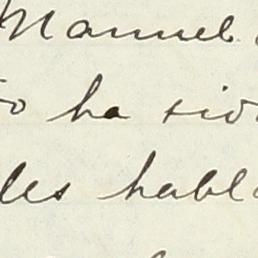 Manuel
ha sido
les habla